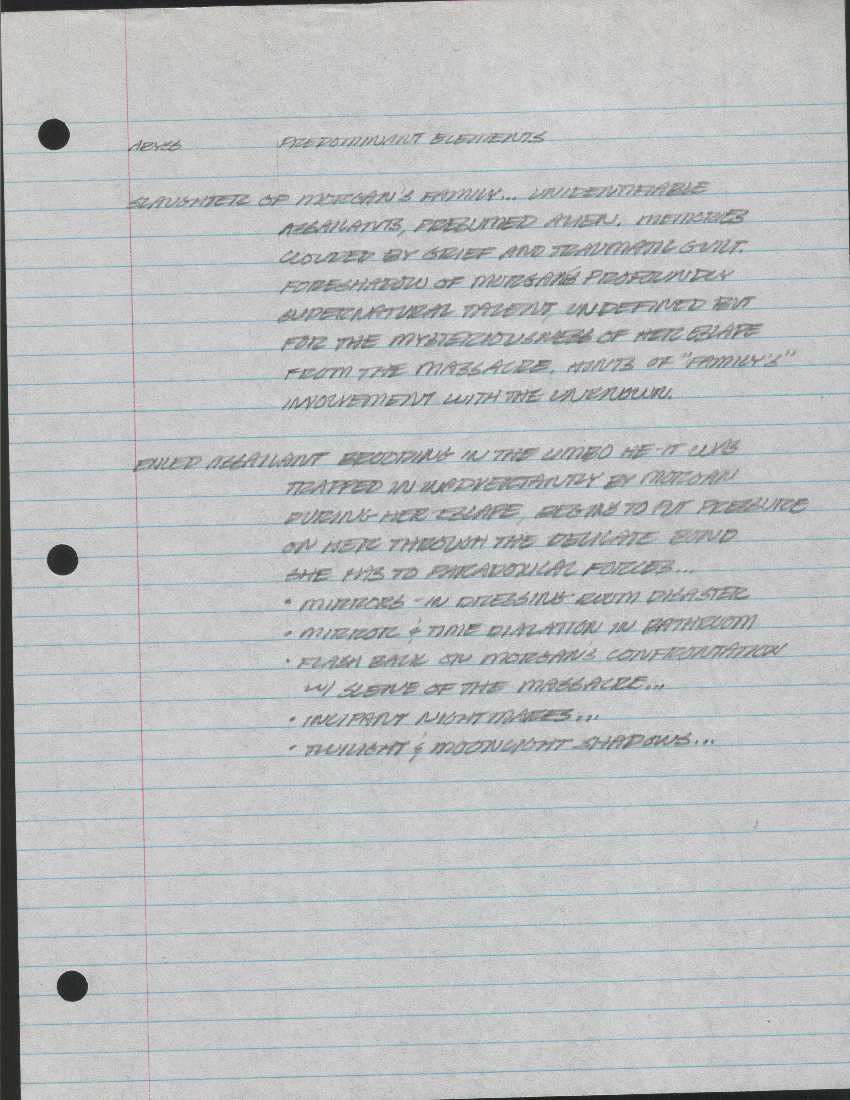 ABYSS PREDOMINANT ELEMENTS
SLAUGHTER OF MORGAN'S FAMILY... UNIDENTIFIABLE
ASSAILANTS, PRESUMED ALIEN. MEMORIES
CLOUDED BY GRIEF AND TRAUMATIC GUILT.
FORESHADOW OF MORGAN'S PROFOUNDLY
SUPERNATURAL TALENT, UNDEFINED BUT
FOR THE MYSTERIOUSNESS OF HER ESCAPE
FROM THE MASSACRE. HINTS OF "FAMILY'S"
INVOLVEMENT WITH THE UNKNOWN.
EXILED ASSAILANT BROODING IN THE LIMBO HE-IT WAS
TRAPPED IN INADVERTANTLY BY MORGAN
DURING HER ESCAPE, BEGINS TO PUT PRESSURE
ON HER THROUGH THE DELICATE BOND
SHE HAS TO PARADOXICAL FORCES...
• MIRRORS - IN DRESSING ROOM DISASTER
• MIRROR & TIME DIALATION IN BATHROOM
• FLASH BACK ON MORGANS CONFRONTATION
W/ SCENE OF THE MASSACRE...
• INCIPANT NIGHTMARES...
• TWILIGHT & MOONLIGHT SHADOWS...